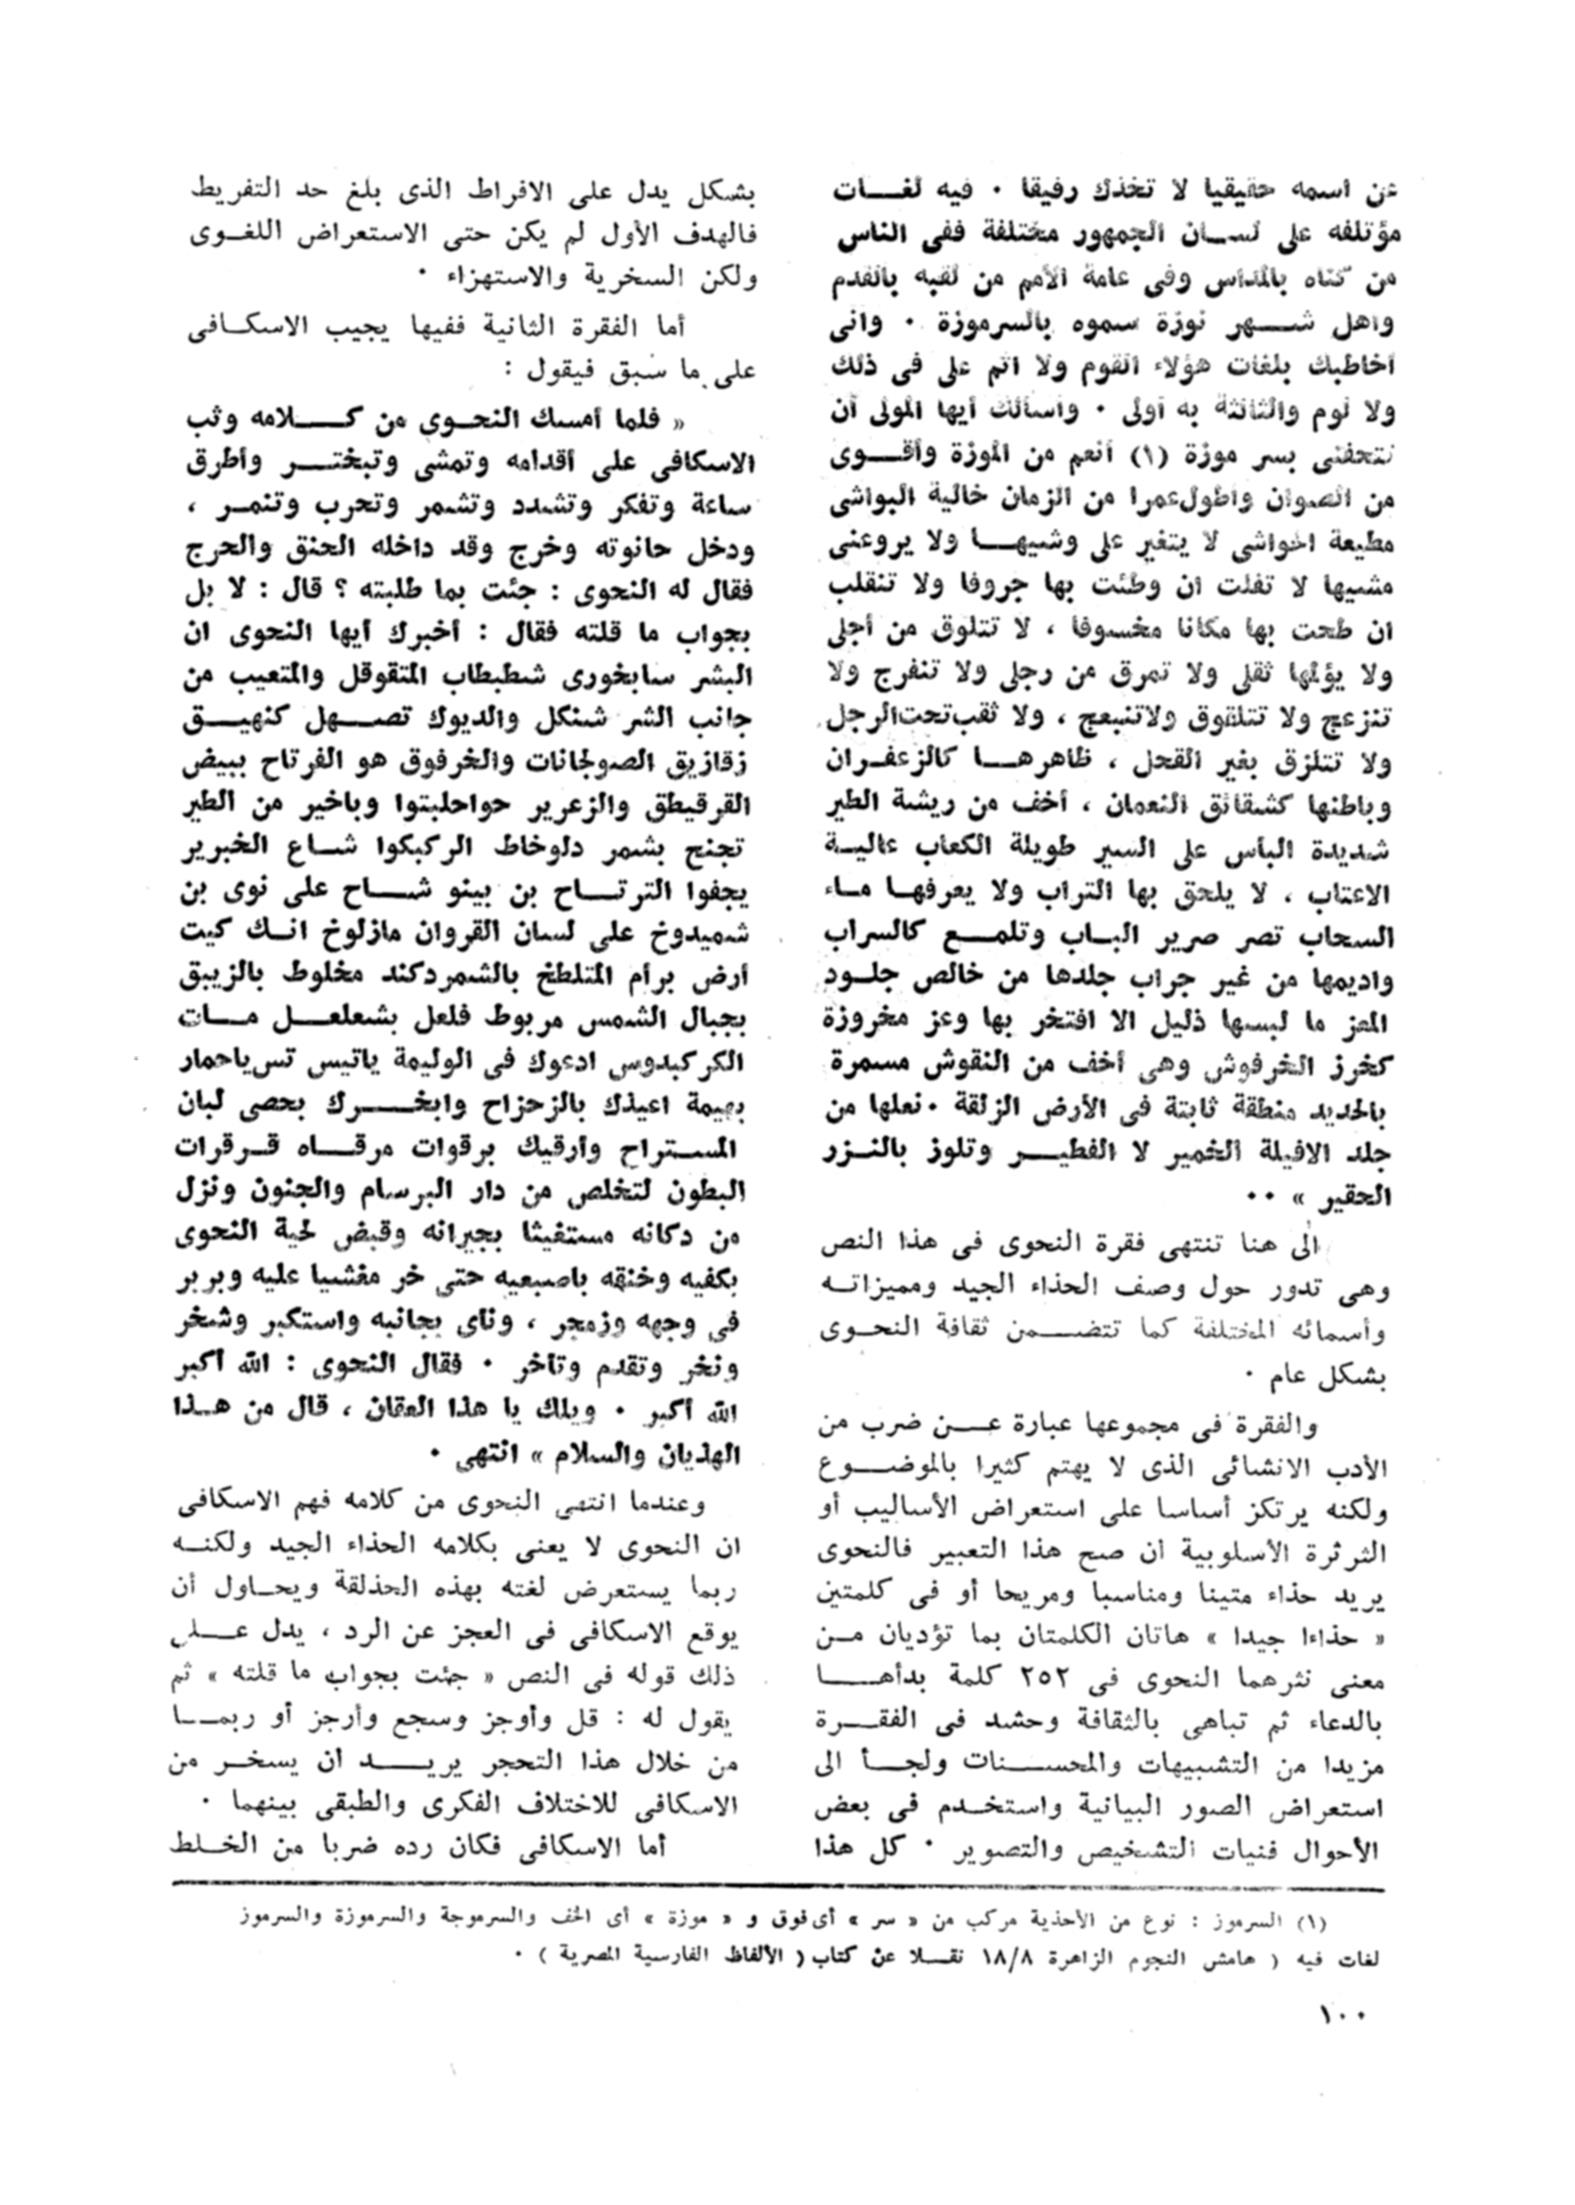 عن اسمه حقيقيا لا تخذك رفيقا ٠ فيه لغات
مؤتلفه على لسان الجمهور مختلفة ففى الناس
من كناه بالمداس وفى عامة الأمم من لقبه بالقدم
واهل شهر نوزة سموه بالسرموزة ٠ وانى
أخاطبك بلغات هؤلاء القوم ولا اثم على فى ذلك
ولا لوم والثالثة به أولى ٠ وأسألك أيها المولى أن
تتحفنى بسر موزة (١) أنعم من الموزة وأقوى
من الصوان وأطول عمرا من الزمان خالية البواشى
مطيعة الحواشى لا يتغير على وشيها ولا يروعنى
مشيها لا تفلت ان وطئت بها جروفا ولا تنقلب
ان طحت بها مكانا مخسوفا ، لا تتلوق من أجلى
ولا يؤلمها ثقلى ولا تمرق من رجلى ولا تنفرج ولا
تنزعج ولا تتلقوق ولاتنبعج ، ولا ثقب تحت الرجل
ولا تتلزق بغير الفحل ، ظاهرها كالزعفران
وباطنها كشقائق النعمان ، أخف من ريشة الطير
شديدة البأس على السير طويلة الكعاب عالية
الاعتاب ، لا يلحق بها التراب ولا يعرفها ماء
السحاب تصر صرير الباب وتلمع كالسراب
واديمها من غير جراب جلدها من خالص جلود
المعز ما لبسها ذليل الا افتخر بها وعز مخروزة
كخرز الخرفوش وهى أخف من النقوش مسمرة
بالحديد منطقة ثابتة فى الأرض الزلقة ٠ نعلها من
جلد الافيلة الخمير لا الفطير وتلوز بالنزر
الحقير » ٠٠
الى هنا تنتهى فقرة النحوى فى هذا النص
وهى تدور حول وصف الحذاء الجيد ومميزاته
وأسمائه المختلفة كما تتضمن ثقافة النحوى
بشكل عام ٠
والفقرة فى مجموعها عبارة عن ضرب من
الأدب الانشائى الذى لا يهتم كثيرا بالموضوع
ولكنه يرتكز أساسا على استعراض الأساليب أو
الثرثرة الأسلوبية أن صح هذا التعبير فالنحوى
يريد حذاء متينا ومناسبا ومريحا أو فى كلمتين
« حذاءا جيدا » هاتان الكلمتان بما تؤديان من
معنى نثرهما النحوى فى ٢٥٢ كلمة بدأها
بالدعاء ثم تباهى بالثقافة وحشد فى الفقرة
مزيدا من التشبيهات والمحسنات ولجأ الى
استعراض الصور البيانية واستخدم فى بعض
الأحوال فنيات التشخيص والتصوير ٠ كل هذا
بشكل يدل على الافراط الذى بلغ حد التفريط
فالهدف الأول لم يكن حتى الاستعراض اللغوى
ولكن السخرية والاستهزاء ٠
أما الفقرة الثانية ففيها يجيب الاسكافى
على ما سبق فيقول :
« فلما أمسك النحوى من كلامه وثب
الاسكافى على أقدامه وتمشى وتبختر وأطرق
ساعة وتفكر وتشدد وتشمر وتحرب وتنمر ،
ودخل حانوته وخرج وقد داخله الحنق والحرج
فقال له النحوى : جئت بما طلبته ؟ قال : لا بل
بجواب ما قلته فقال : أخبرك أيها النحوى ان
البشر سابخورى شطبطاب المتقوقل والمتعيب من
جانب الشر شنكل والديوك تصهل كنهيق
زقازيق الصولجانات والخرفوق هو الفرتاح ببيض
القرقيطق والزعرير حواحلبتوا وباخير من الطير
تجنح بشمر دلوخاط الركبكوا شاع الخبرير
يجفوا الترتاح بن بينو شاح على نوى بن
شميدوخ على لسان القروان مازلوخ انك كيت
أرض برأم المتلطخ بالشمردكند مخلوط بالزيبق
بجبال الشمس مربوط فلعل بشعلعل مات
الكركبدوس ادعوك فى الوليمة ياتيس تس ياحمار
بهيمة اعيذك بالزحزاح وابخرك بحصى لبان
المستراح وارقيك برقوات مرقاه قرقرات
البطون لتخلص من دار البرسام والجنون ونزل
من دكانه مستغيثا بجيرانه وقبض لحية النحوى
بكفيه وخنقه باصبعيه حتى خر مغشيا عليه وبربر
فى وجهه وزمجر ، وناى بجانبه واستكبر وشخر
ونخر وتقدم وتأخر ٠ فقال النحوى : الله أكبر
الله أكبر ٠ ويلك يا هذا العقان ، قال من هذا
الهذيان والسلام » انتهى ٠
وعندما انتهى النحوى من كلامه فهم الاسكافى
ان النحوى لا يعنى بكلامه الحذاء الجيد ولكنه
ربما يستعرض لغته بهذه الحذلقة ويحاول أن
يوقع الاسكافى فى العجز عن الرد ، يدل على
ذلك قوله فى النص « جئت بجواب ما قلته » ثم
يقول له : قل وأوجز وسجع وأرجز أو ربما
من خلال هذا التحجر يريد أن يسخر من
الاسكافى للاختلاف الفكرى والطبقى بينهما ٠
أما الاسكافى فكان رده ضربا من الخلط
(١) السرموز : نوع من الأحذية مركب من « سر » أى فوق و « موزة » أى الخف والسرموجة والسرموزة والسرموز
لغات فيه ( هامش النجوم الزاهرة ١٨/٨ نقلا عن كتاب ( الألفاظ الفارسية المصرية ) ٠
١٠٠